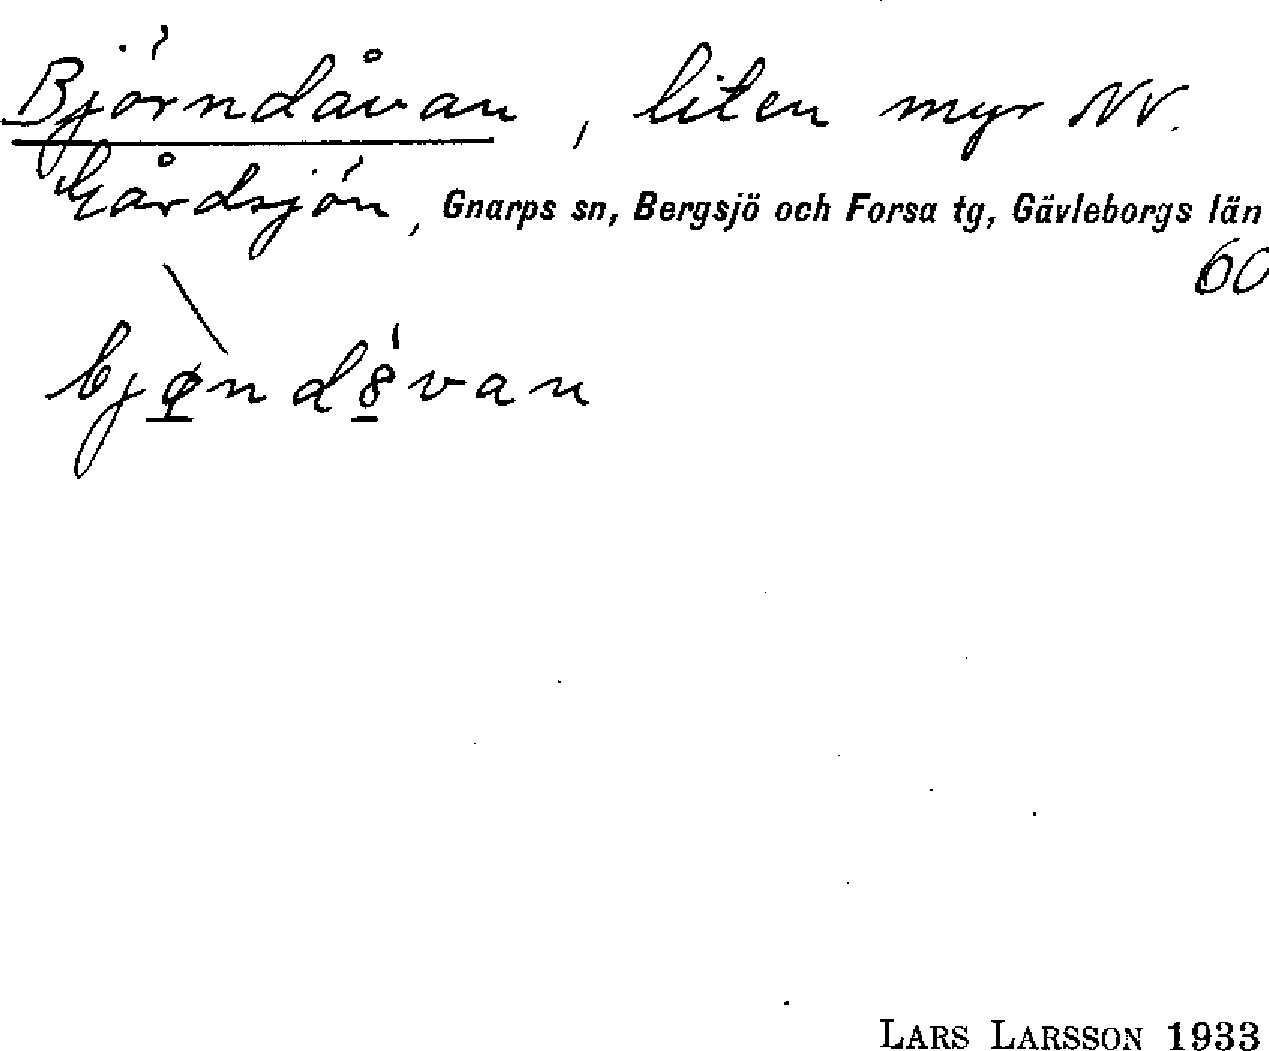 Björndåvan, liten myr NV.
Gårdsjön, Gnarps sn, Bergsjö och Forsa tg, Gävleborgs län
60
bjøndȣvan
LARS LARSSON 1933